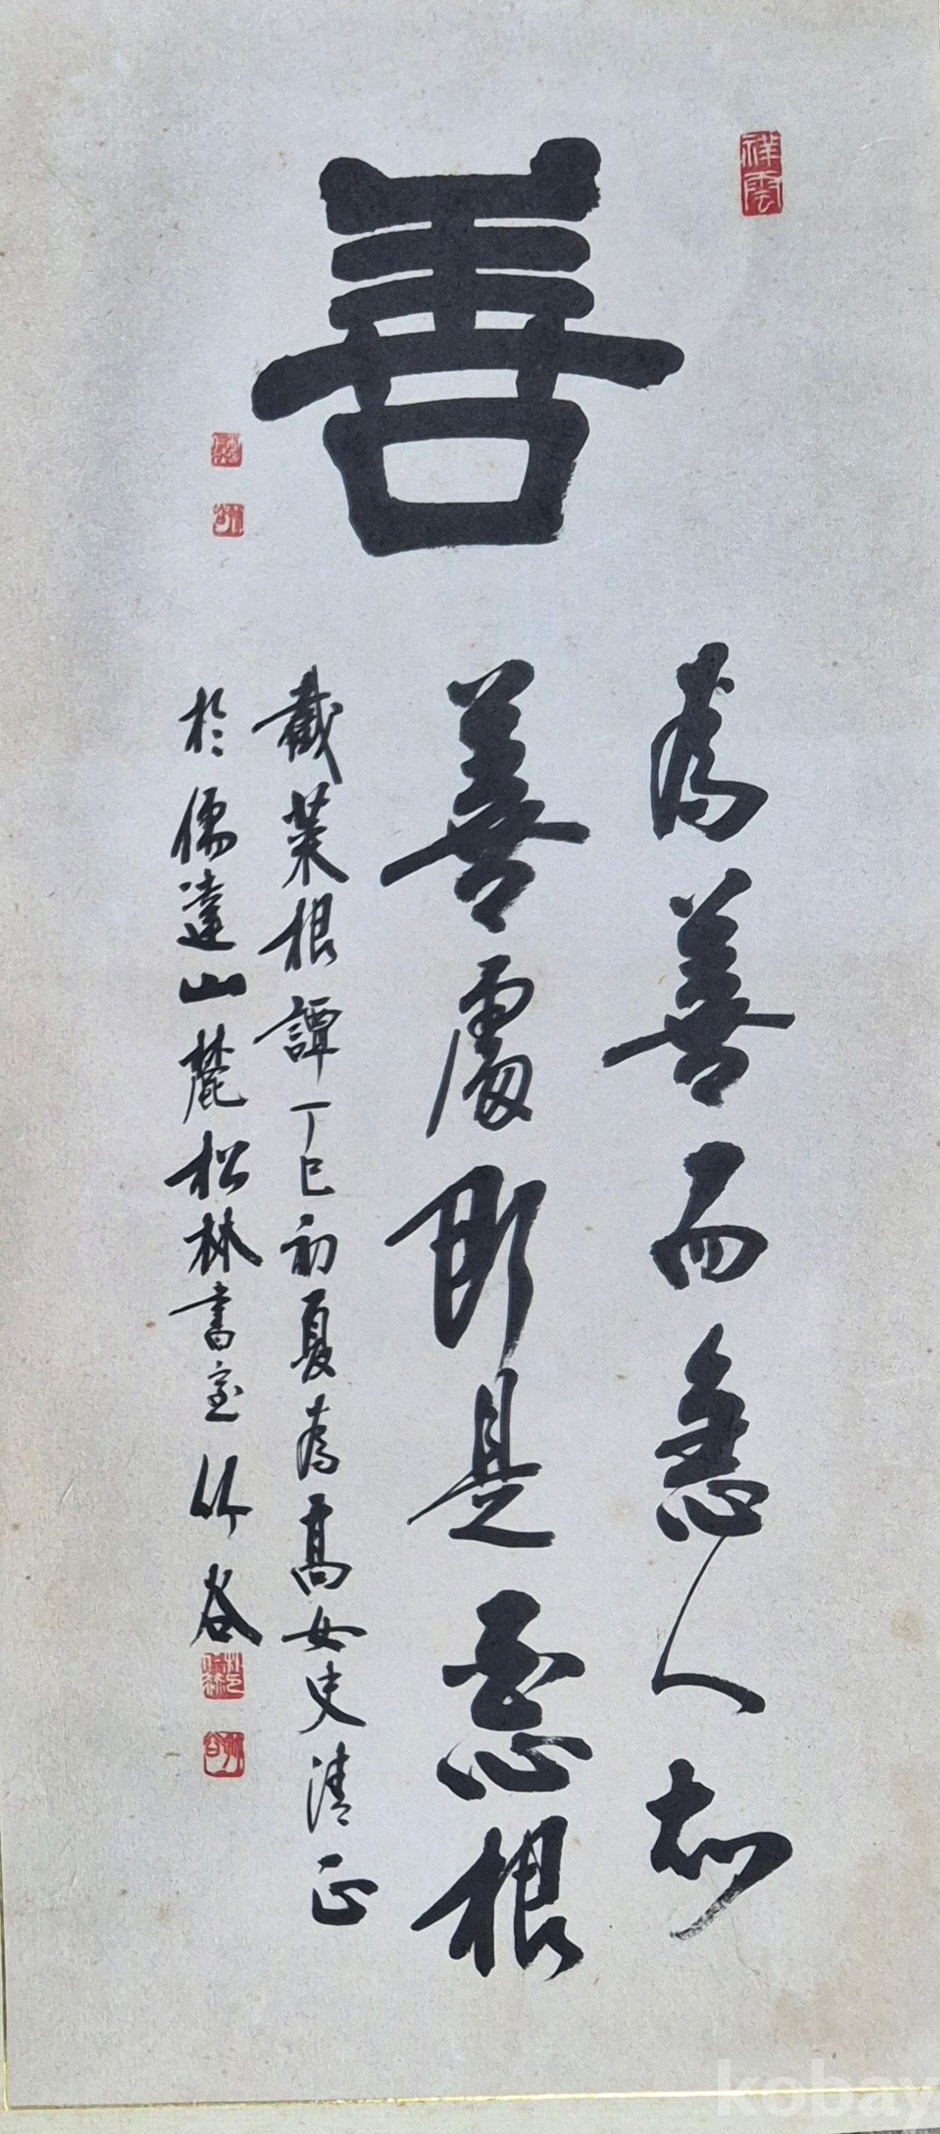 祥雲
善
為善而急人知
善處即是惡根
截菜根譚丁巳初夏為高女史清正
於儒達山麓松林書室竹谷
kobay